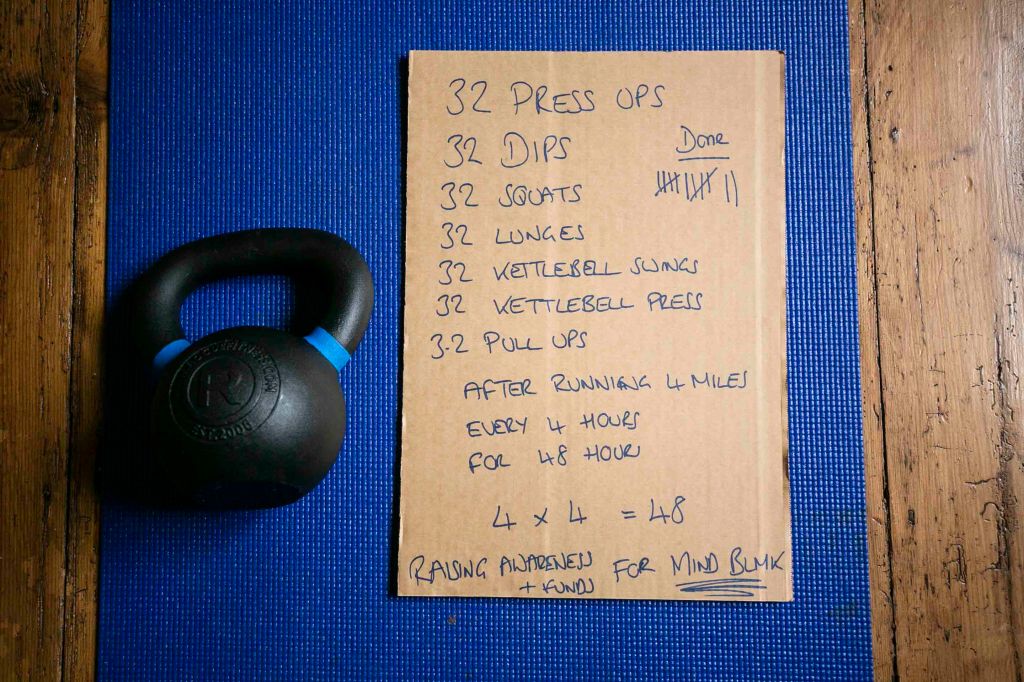 32 PRESS UPS
32 DIPS
Done
32 SQUATS
32 LUNGES
32 KETTLEBELL SWINGS
32 KETTLEBELL PRESS
3.2 PULL UPS
AFTER RUNNING 4 MILES
EVERY 4 HOURS
FOR 48 HOUR
4 x 4 = 48
RAISING AWARENESS + FUNDS FOR MIND BLMK
R
EST. 2006